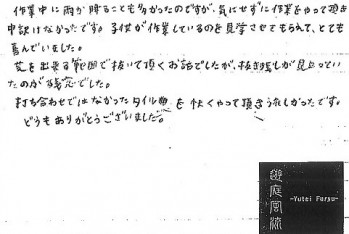 作業中に雨が降ることも多かったのですが、気にせずに作業をやって頂き
申訳けなかったです。子供が作業しているのを見学させてもらえて、とても
喜んでいました。
芝を出来る範囲で抜いて頂くお話でしたが、抜き残しが見立っていた
のが残念でした。
打ち合わせではなかったタイル を快くやって頂きうれしかったです。
どうもありがとうございました。
遊庭風流
-Yutei Furyu-